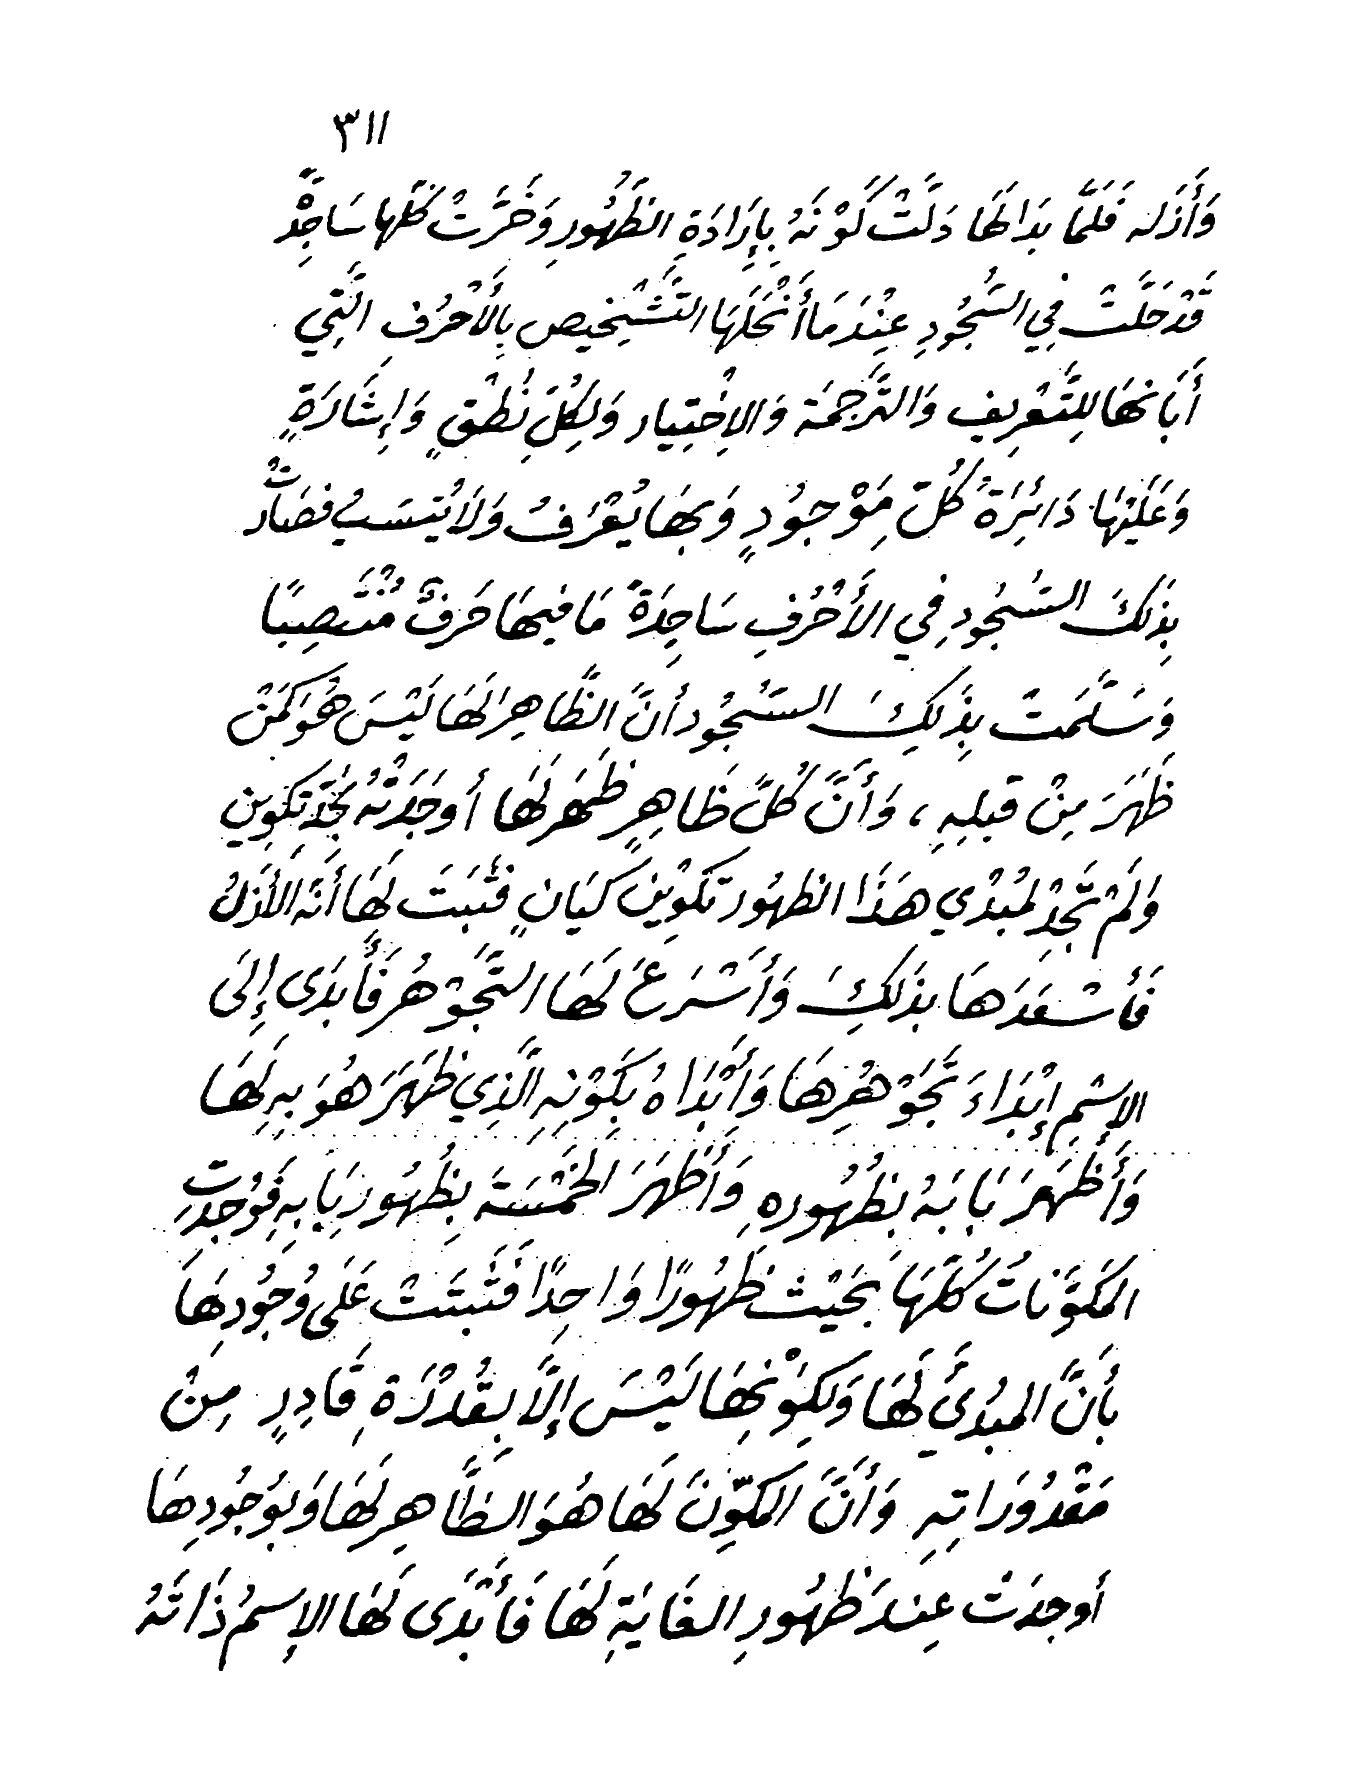 ٣١١
وَأَزَله فَلَمَّا بَدَا لَهَا دَلَّتْ كَوْنَهُ بِإِرَادَةِ الظُّهُورِ وَخَرَّتْ كُلَّهَا سَاجِدَةً
قَدْ حَلَّتْ فِي السُّجُودِ عِنْدَمَا أَنْحَلَهَا التَّشْخِيص بِالأَحْرُفِ الَّتِي
أَبَانَهَا لِلتَّعْرِيفِ وَالتَّرْجَمَة وَالإِخْتِيَار وَلِكُلِّ نُطْقٍ وَإِشَارَةٍ
وَعَلَيْهَا دَائِرَةُ كُلّ مَوْجُودٍ وَبِهَا يُعْرَفُ وَلاَ يُنْسَبُ فَصَارَتْ
بِذَلِكَ السُّجُودِ فِي الأَحْرُفِ سَاجِدَةً مَا فِيهَا حَرفٌ مُنْتَصِبًا
وَسَلَّمَتْ بِذَلِكَ السُّجُود أَنَّ الظَّاهِرَ لَهَا لَيْسَ هُوَ كَمَنْ
ظَهَرَ مِنْ قبلِهِ ، وَأَنَّ كُلَّ ظَاهِرٍ ظَهَرَ لَهَا أَوجَدَتْهُ بِحَدِّ تَكوِينِ
وَلَمْ تَجِدْ لمُبْدِي هَذَا الظهُور تَكوِينَ كيَانٍ فَثَبَتَ لَهَا أَنَّهُ الأَزَلُ
فَأَشْهَدَهَا بذَلِكَ وَأَشْرَعَ لَهَا التَّجَوْهُر فَأَبدَى إِلَى
الإِسْمِ إِبْدَاءَ تَجَوْهُرِهَا وَأَبْدَاهُ بِكَوْنِهِ الَّذِي ظَهَرَ هُوَ بِهِ لَهَا
وَأَظْهَرَ بَابَهُ بِظُهُورِهِ وَأَظْهَرَ الخَمْسَةَ بِظُهُورِ بَابِهِ فَوُجِدَتِ
المكَوَّنَاتُ كُلَّهَا بِحَيْث ظُهُورًا وَاحِدًا فَثَبَتَتْ عَلَى وُجُودِهَا
بِأَنَّ المبْدِئَ لَهَا وَلِكَوْنِهَا لَيْسَ إِلاَّ بِقُدْرَةِ قَادِرٍ مِنْ
مَقْدُورَاتِهِ وَأَنَّ المكَوِّنَ لَهَا هُوَ الظَّاهِر لَهَا وَبِوُجُودِهَا
أَوجدَتْ عِندَ ظُهُورِ الغَايَةِ لَهَا فَأَبْدَى لَهَا الإِسمُ ذَاتَهُ